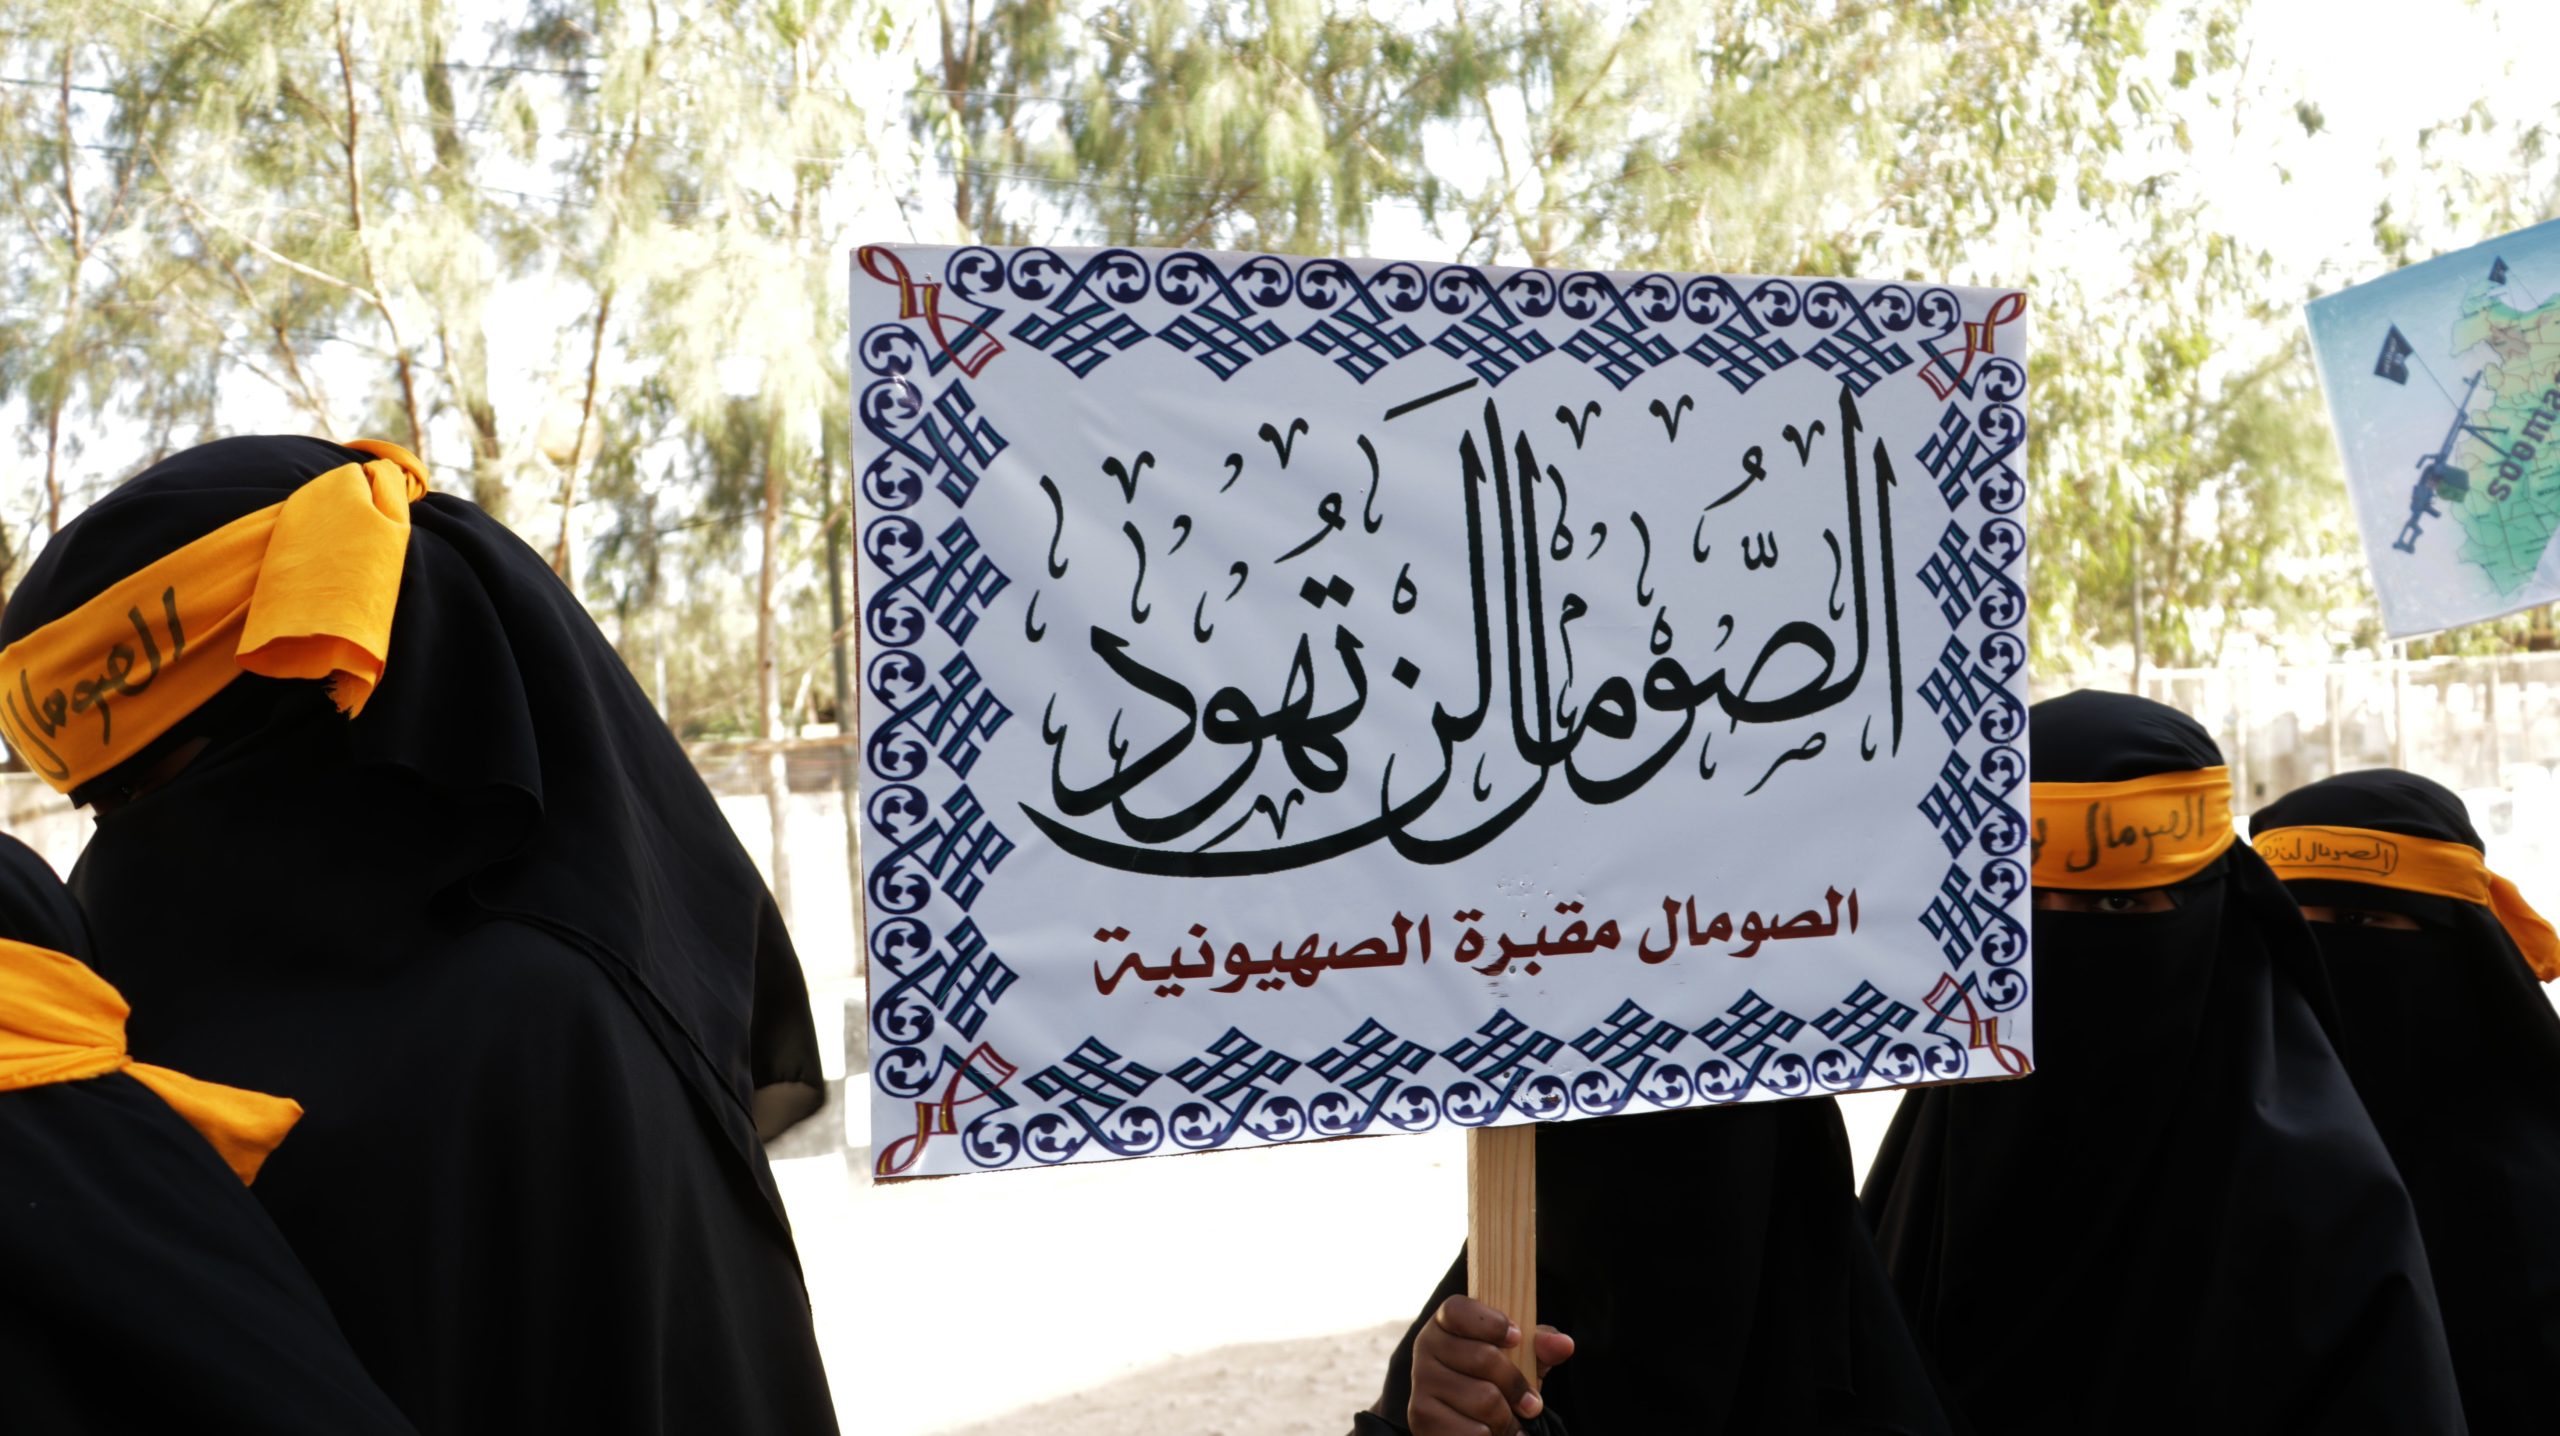 الصُّومال لن تُهوَّد
الصومال مقبرة الصهيونية
الصومال
الصومال
الصومال لن تهود
sooma